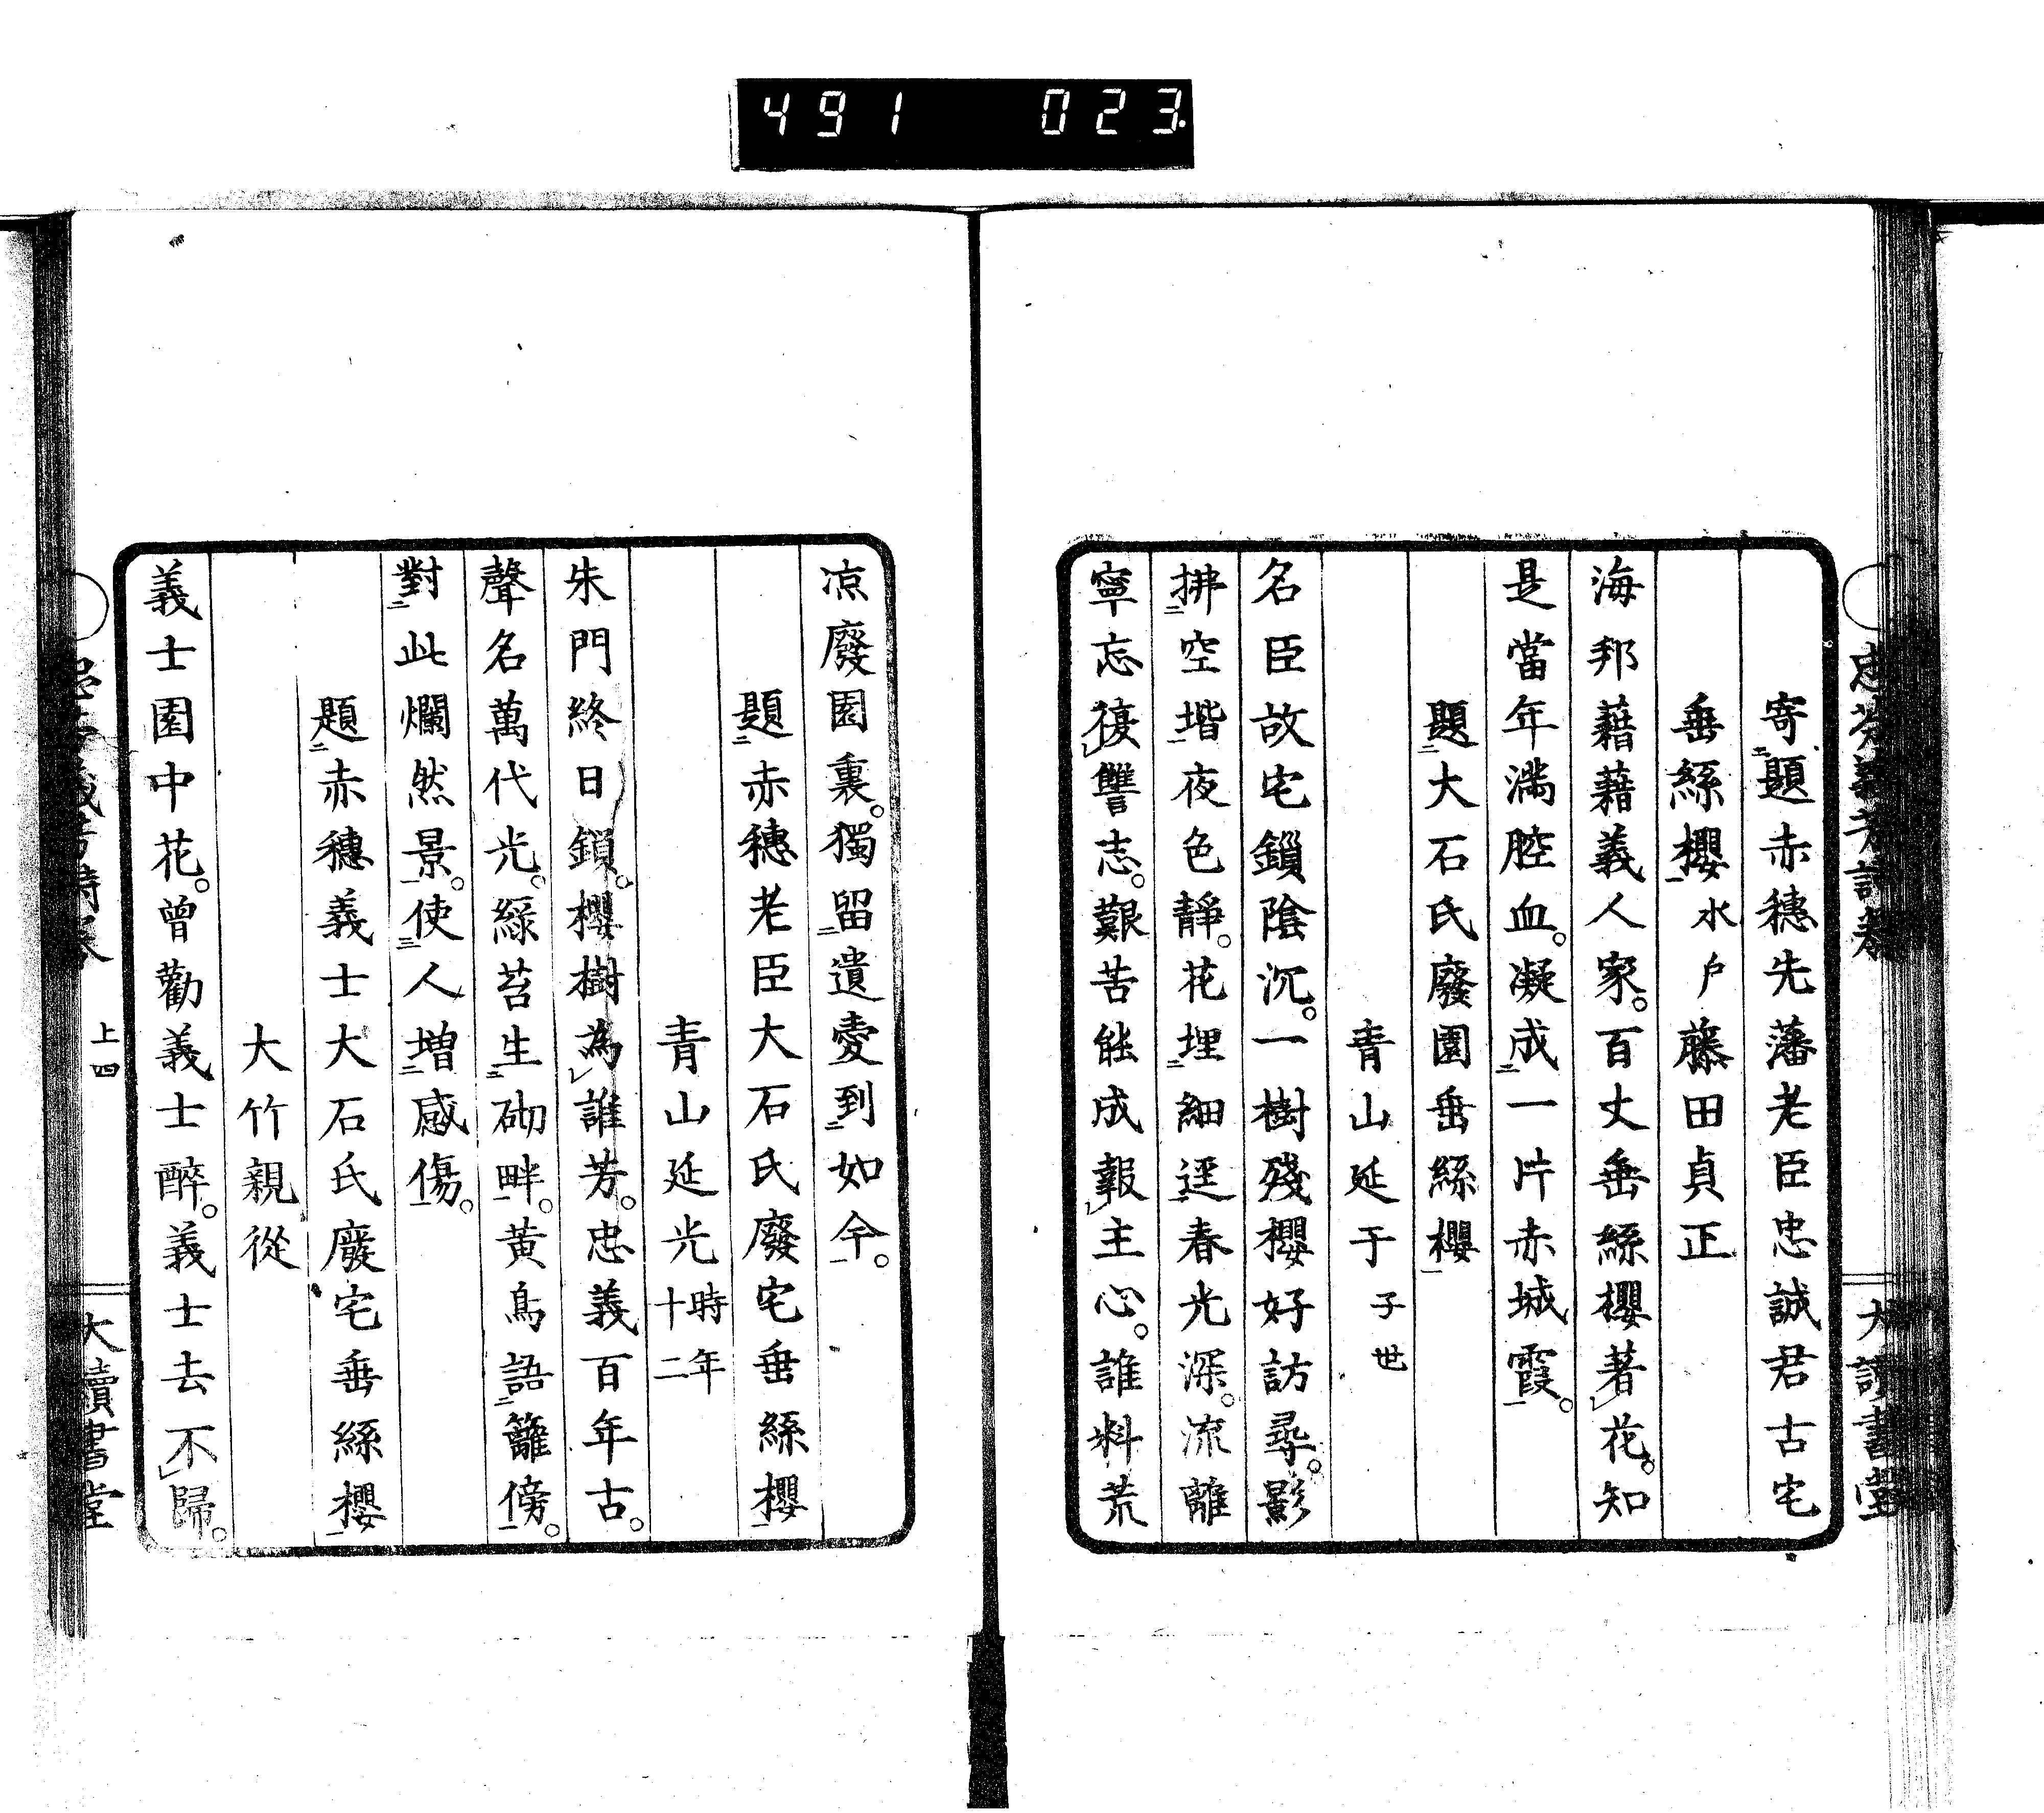 491 023
寄題赤穗先藩老臣忠誠君古宅
垂絲櫻 水戶 藤田貞正
海邦藉藉義人家。百丈垂絲櫻著花。知
是當年滿腔血。凝成一片赤城霞。
題大石氏廢園垂絲櫻
青山延于 子世
名臣故宅鎻陰沉。一樹殘櫻好訪尋。影
拂空堦夜色靜。花埋細逕春光深。流離
寧忘復讐志。艱苦能成報主心。誰料荒
凉廢園裏。獨留遺愛到如今。
題赤穗老臣大石氏廢宅垂絲櫻
青山延光 時年十二
朱門終日鎖。櫻樹為誰芳。忠義百年古。
聲名萬代光。綠苔生砌畔。黃鳥語籬傍。
對此爛然景。使人增感傷。
題赤穗義士大石氏廢宅垂絲櫻
大竹親從
義士園中花。曾勸義士醉。義士去不歸。
上四
大讀書堂